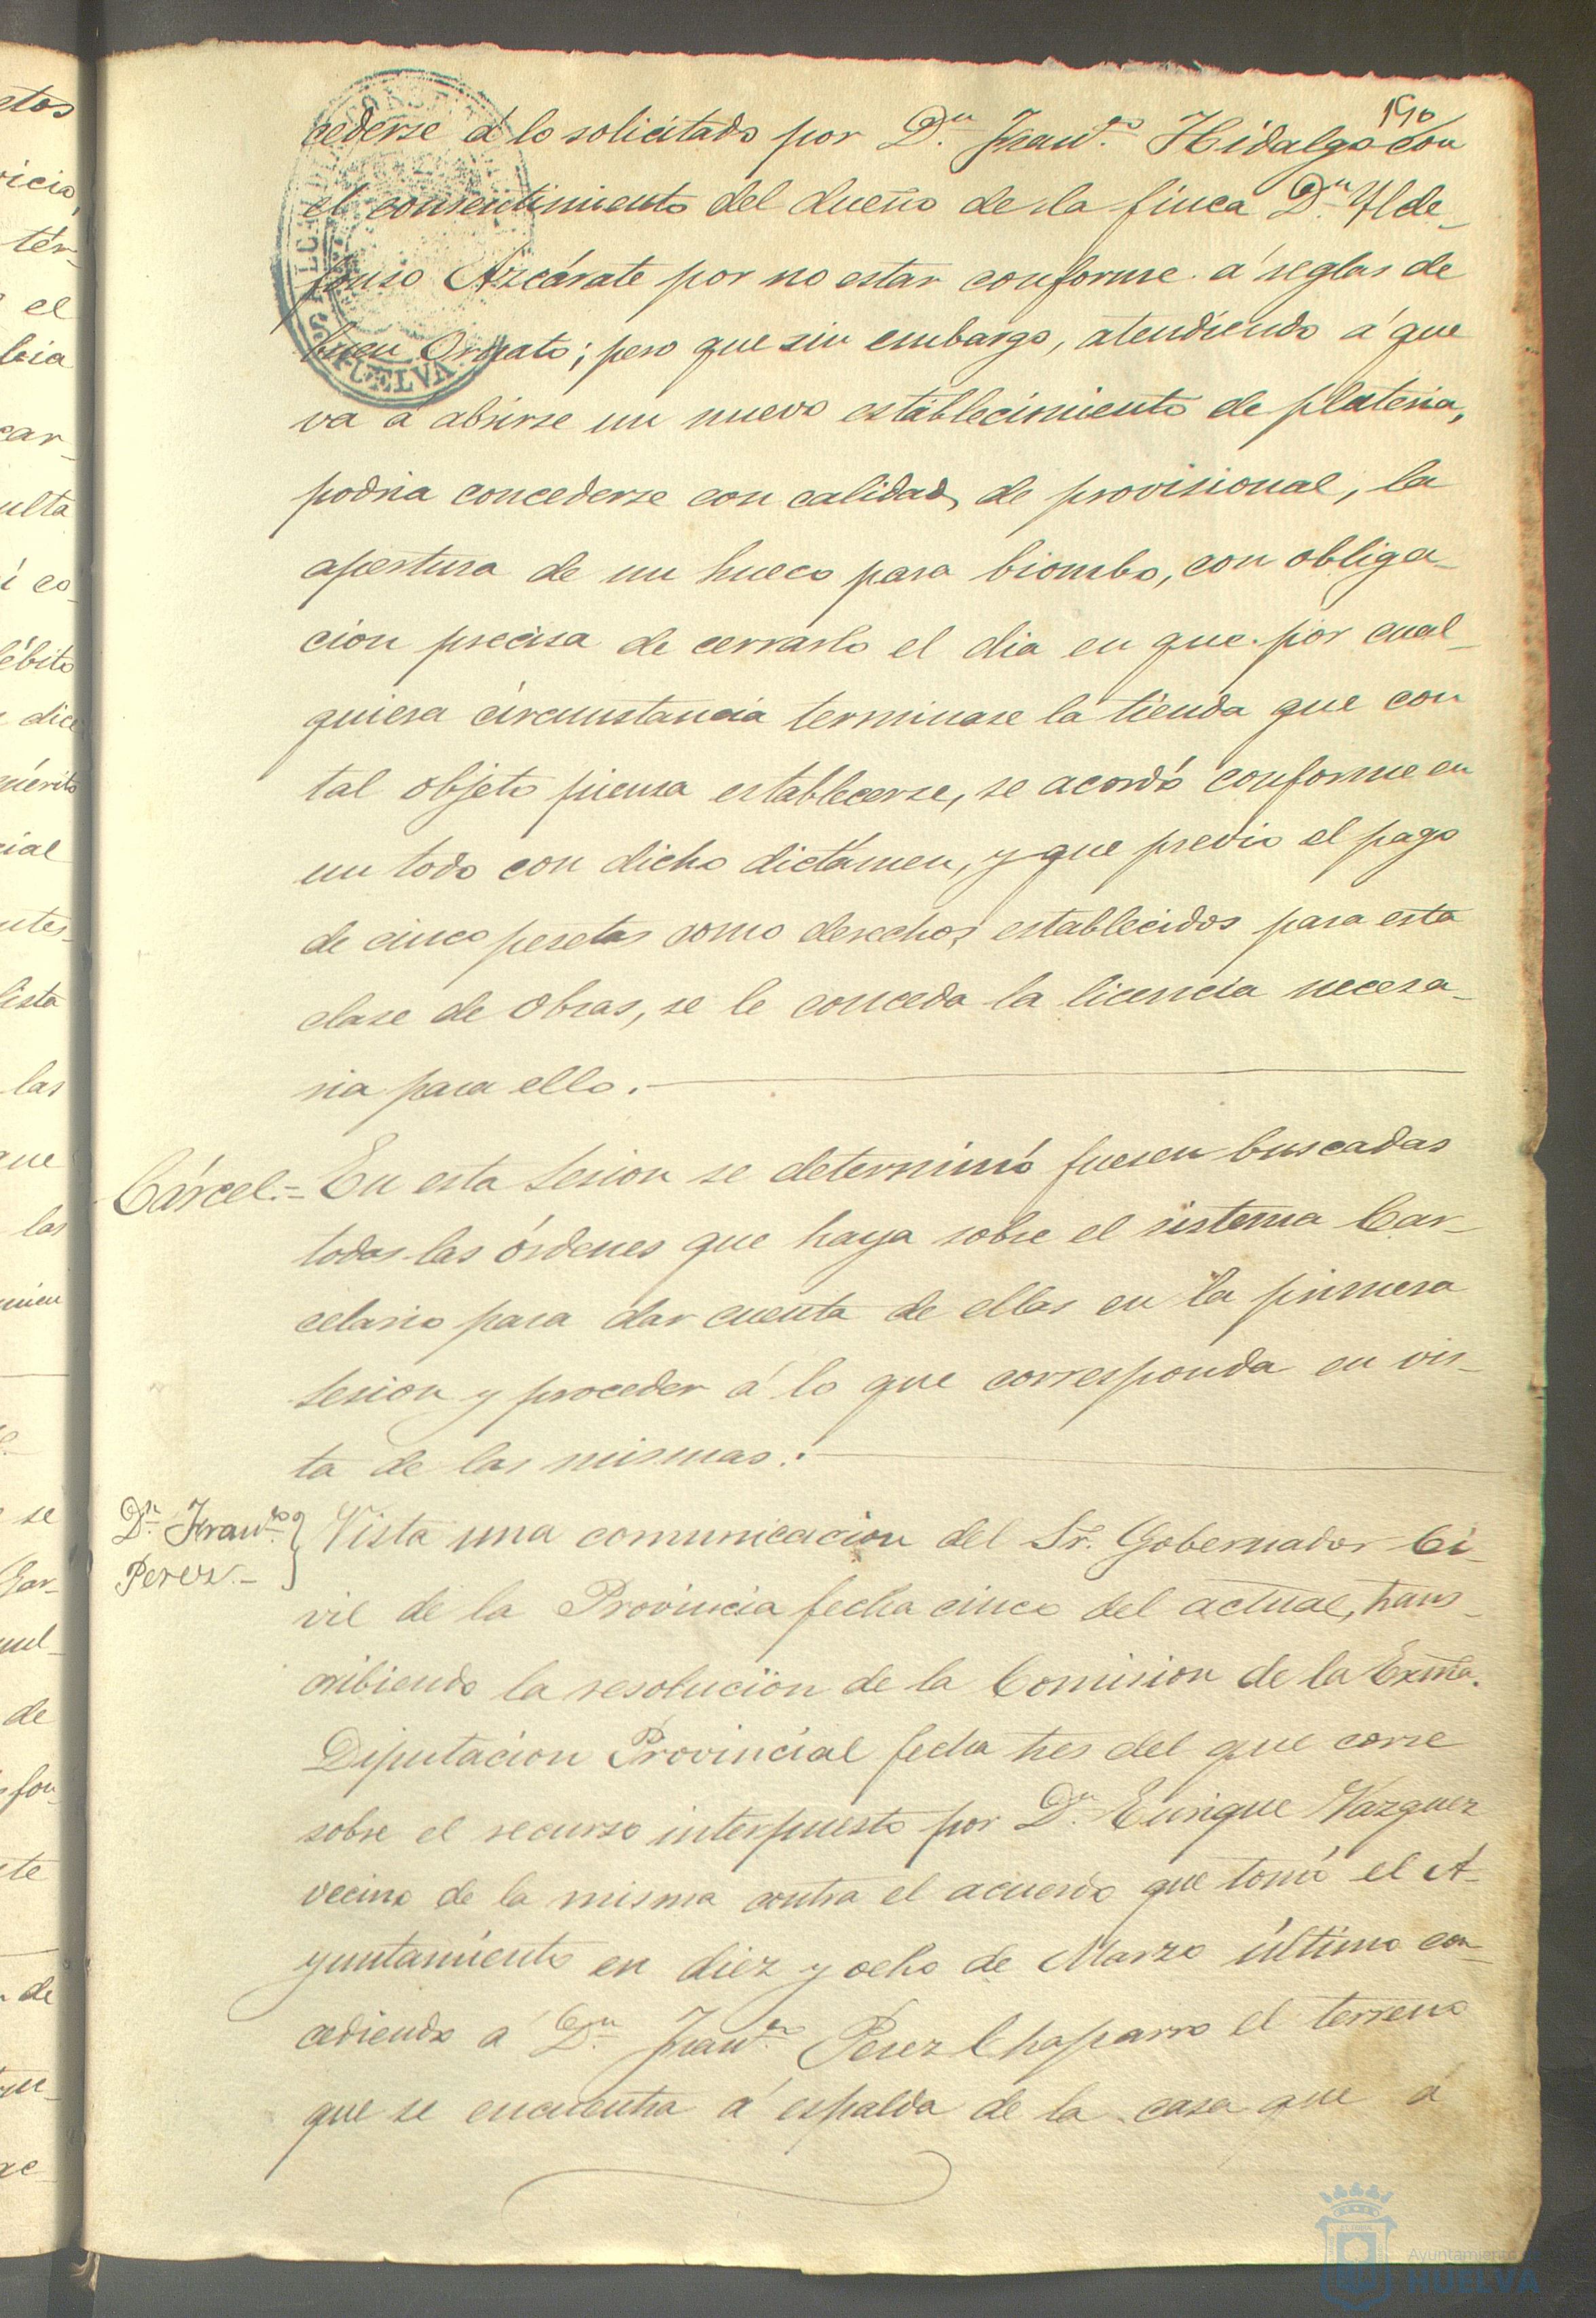 190
cederse á lo solicitado por Dn. Franco. Hidalgo con
el consentimiento del dueño de la finca Dn. Ylde-
fonso Azcárate por no estar conforme á reglas de
buen Ornato; pero que sin embargo, atendiendo á que
va á abrirse un nuevo establecimiento de plateria,
podria concederse con calidad, de provisional, la
apertura de un hueco para biombo, con obliga-
cion precisa de cerrarlo el dia en que por cual-
quiera circunstancia terminase la tienda que con
tal objeto piensa establecerse, se acordó conforme en
un todo con dicho dictámen, y que previo el pago
de cinco pesetas como derechos establecidos para esta
clase de obras, se le conceda la licencia necesa-
ria para ello.
Cárcel.= En esta Sesion se determinó fuesen buscadas
todas las órdenes que haya sobre el sistema Car-
celario para dar cuenta de ellas en la primera
Sesion y proceder á lo que corresponda en vis-
ta de las mismas.
Dn. Franco.
Perez.-
Vista una comunicacion del Sr. Gobernador Ci-
vil de la Provincia fecha cinco del actual, trans-
cribiendo la resolucion de la Comision de la Exma.
Diputacion Provincial fecha tres del que corre
sobre el recurso interpuesto por Dn. Enrique Vazquez
vecino de la misma contra el acuerdo que tomó el A-
yuntamiento en diez y ocho de Marzo último con-
cediendo á Dn. Franco. Pérez Chaparro el terreno
que se encuentra á espalda de la casa que á
HUELVA
Ayuntamiento
HUELVA